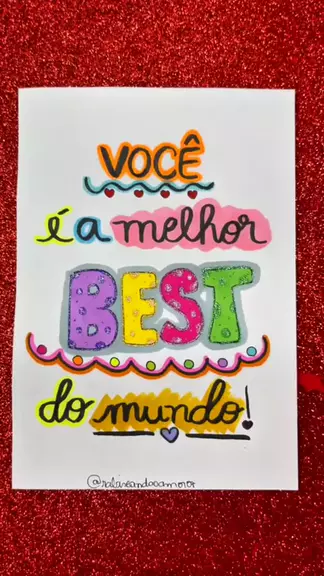 VOCÊ
é a melhor
BEST
do mundo!